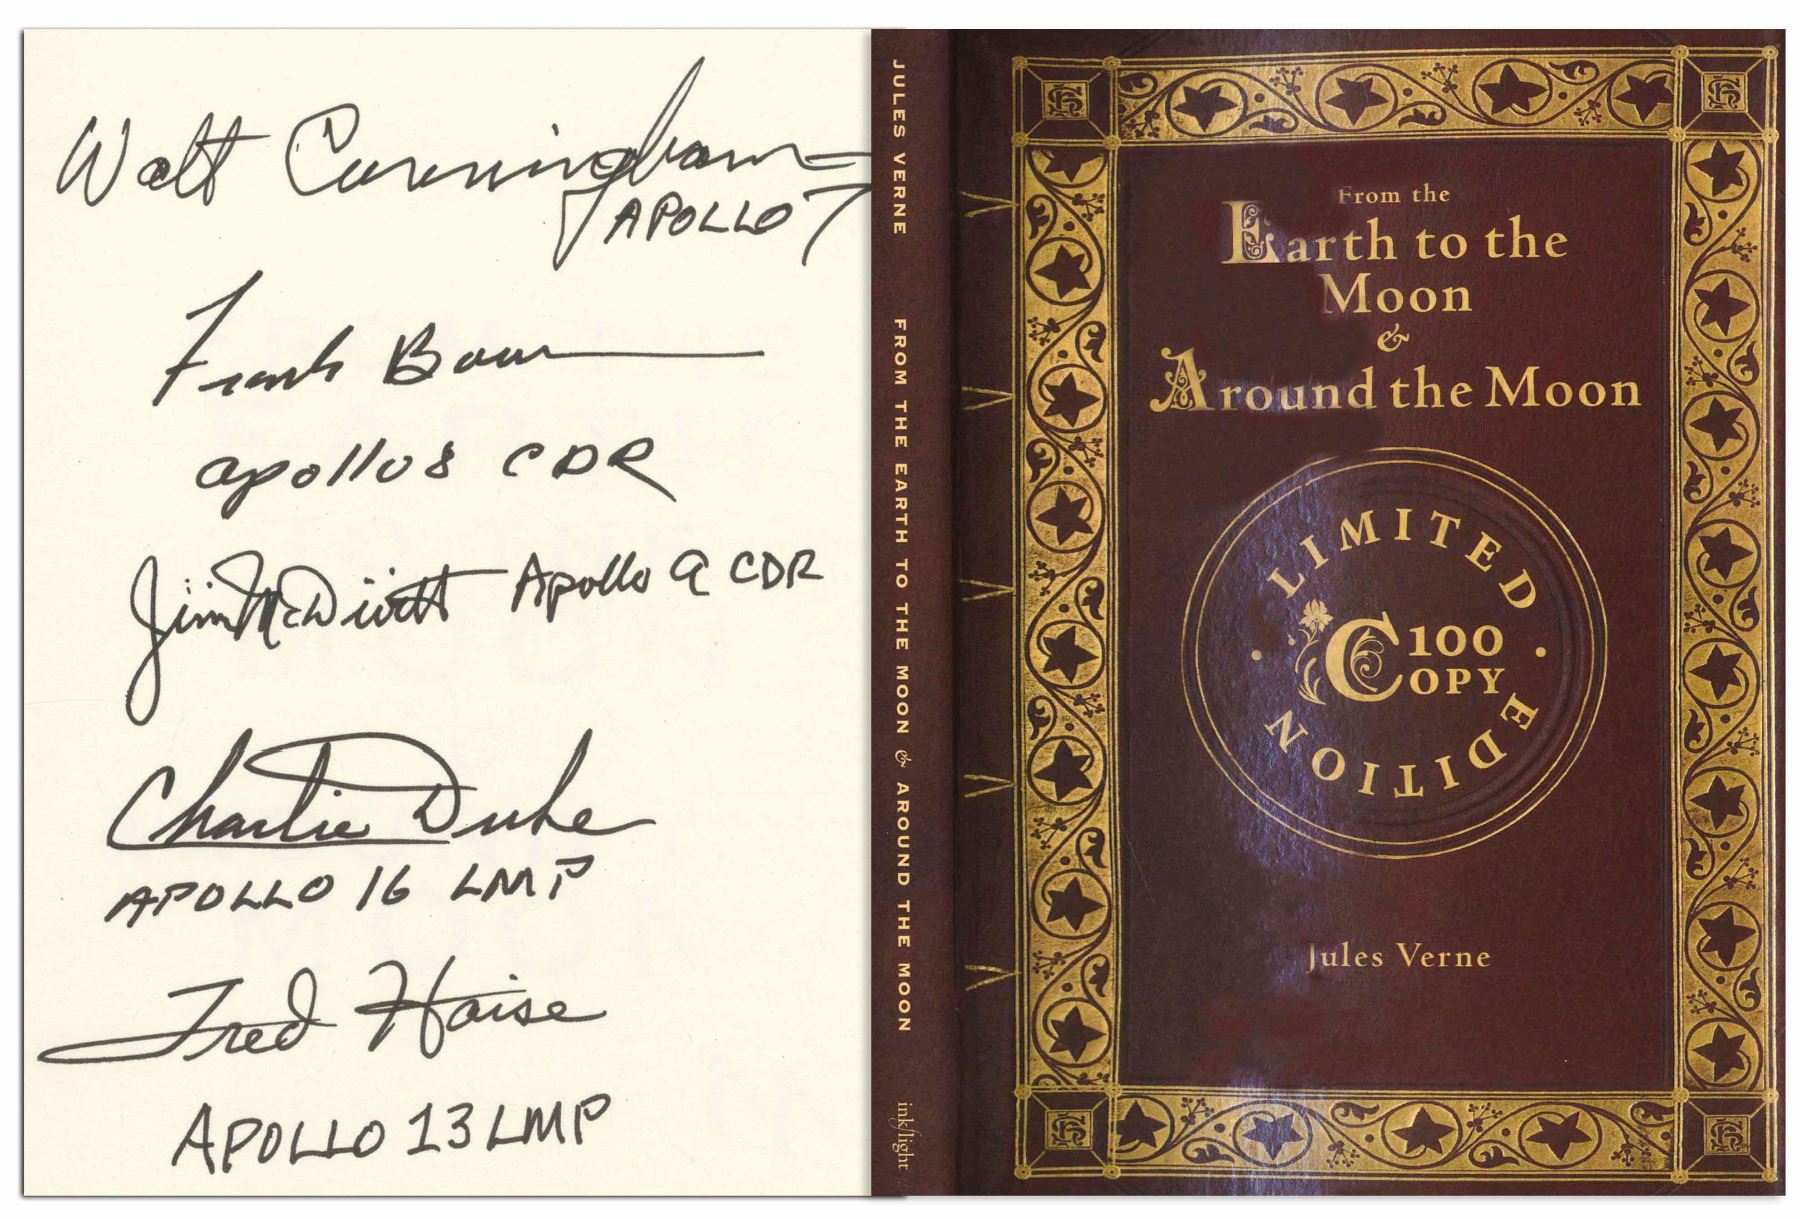 Walt Cunningham
APOLLO 7
Frank Borman
apollo 8 CDR
Jim McDivitt Apollo 9 CDR
Charlie Duke
APOLLO 16 LMP
Fred Haise
APOLLO 13 LMP
JULES VERNE FROM THE EARTH TO THE MOON & AROUND THE MOON ink/light
From the
Earth to the
Moon
&
Around the Moon
LIMITED
100
COPY
EDITION
Jules Verne